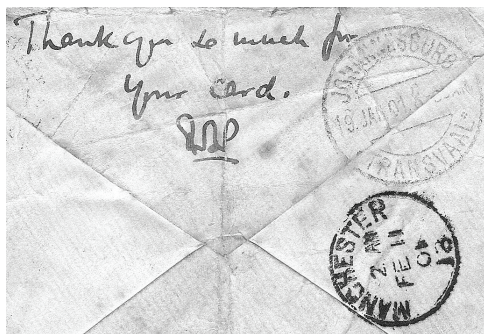 Thank you so much for
your card.
JOHANNESBURG
19. JAN 01.
TRANSVAAL
MANCHESTER
2 AM
FE 11
01